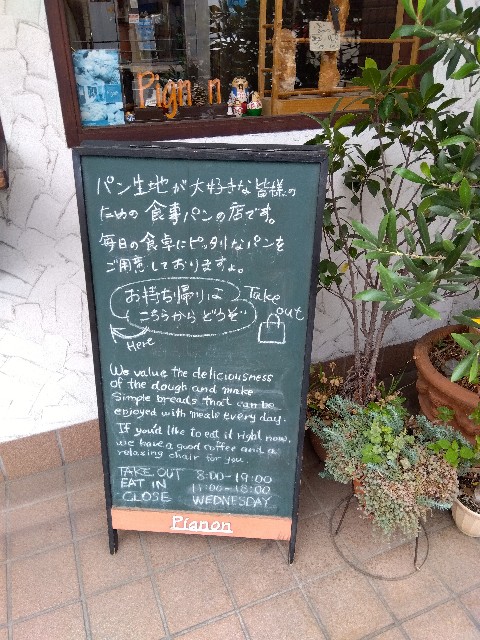 Pian n
パン生地が大好きな皆様の
ための食事パンの店です。
毎日の食卓にピッタリなパンを
ご用意しておりますよ。
お持ち帰りは
こちらからどうぞ
Take out
Here
We value the deliciousness
of the dough and make
simple breads that can be
enjoyed with meals every day.
If you'd like to eat it right now,
we have a good coffee and a
relaxing chair for you.
TAKE OUT 8:00-19:00
EAT IN 11:00-18:00
CLOSE WEDNESDAY
Pianon